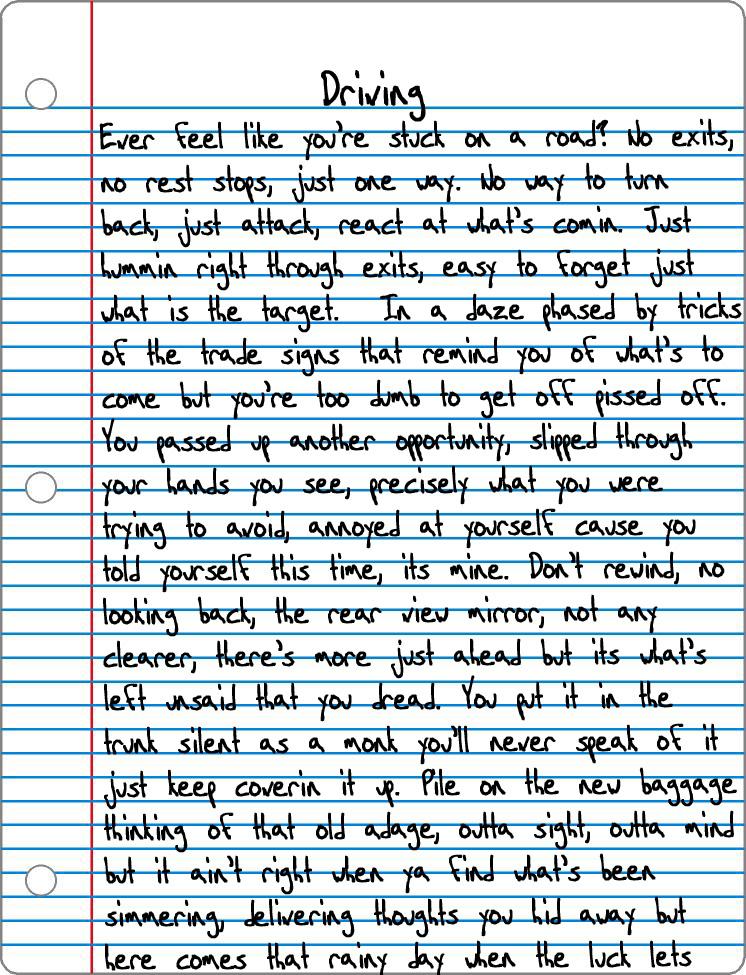 Driving
Ever feel like you're stuck on a road? No exits,
no rest stops, just one way. No way to turn
back, just attack, react at what's comin. Just
hummin right through exits, easy to forget just
what is the target. In a daze phased by tricks
of the trade signs that remind you of what's to
come but you're too dumb to get off pissed off.
You passed up another opportunity, slipped through
your hands you see, precisely what you were
trying to avoid, annoyed at yourself cause you
told yourself this time, its mine. Don't rewind, no
looking back, the rear view mirror, not any
clearer, there's more just ahead but its what's
left unsaid that you dread. You put it in the
trunk silent as a monk you'll never speak of it
just keep coverin it up. Pile on the new baggage
thinking of that old adage, outta sight, outta mind
but it ain't right when ya find what's been
simmering, delivering thoughts you hid away but
here comes that rainy day when the luck lets